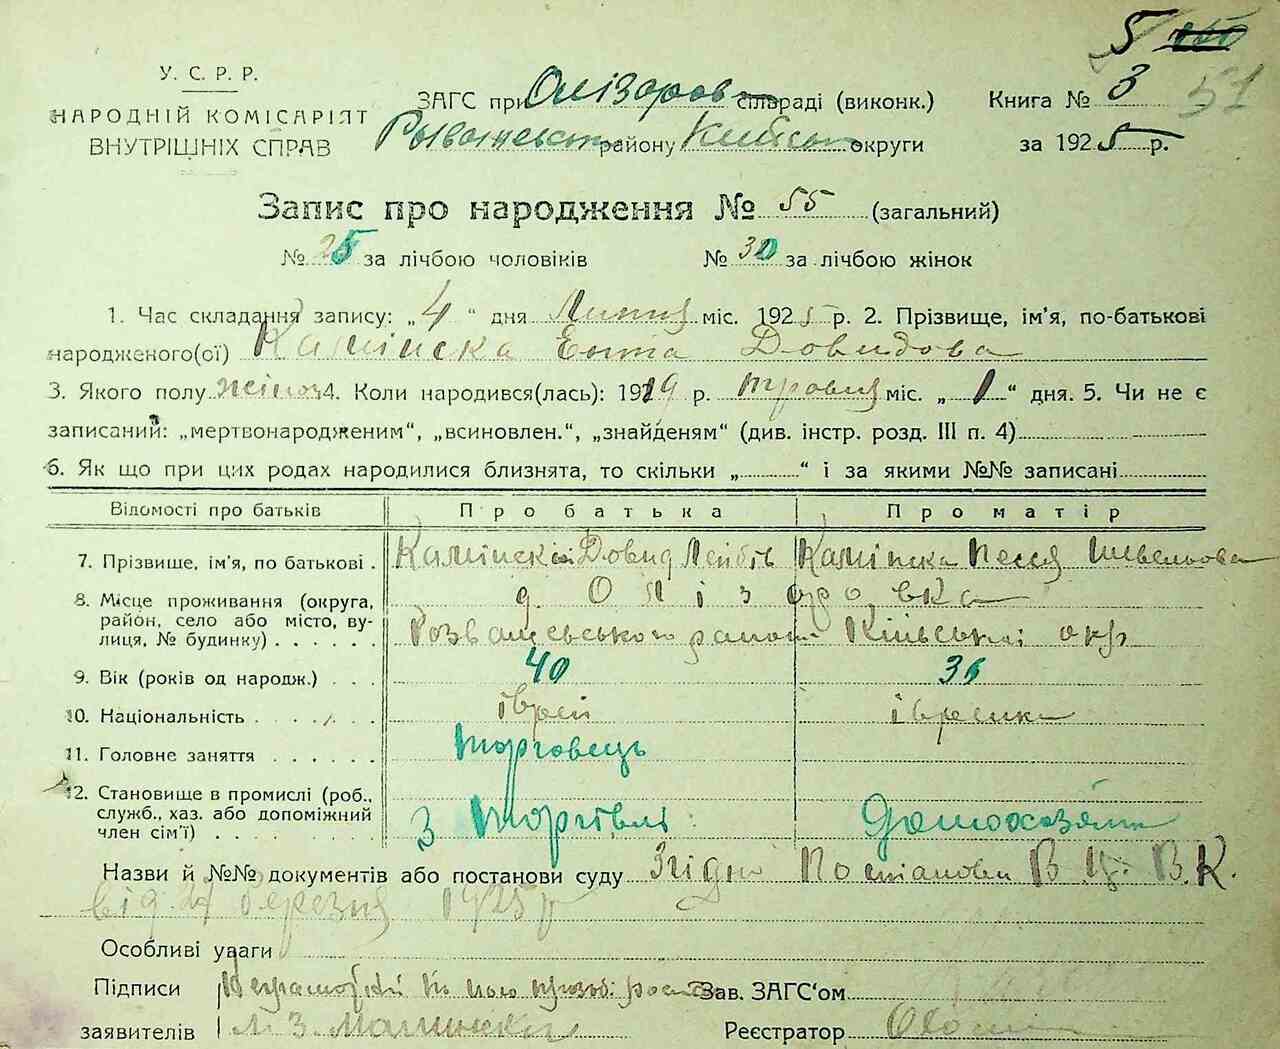 5
51
У. С. Р. Р.
НАРОДНІЙ КОМІСАРІЯТ
ВНУТРІШНІХ СПРАВ
ЗАГС при Олізаров сільраді (виконк.)
району округи
Книга № 3
за 1925 р.
Запис про народження № 55 (загальний)
№ 25 за лічбою чоловіків № 30 за лічбою жінок
1. Час складання запису: „4“ дня Липня міс. 1925 р. 2. Прізвище, ім'я, по-батькові
народженого(ої) Камінска Ента Довидова
3. Якого полу жіноч 4. Коли народився(лась): 1919 р. травня міс. „1“ дня. 5. Чи не є
записаний: „мертвонародженим“, „всиновлен.“, „знайденям“ (див. інстр. розд. III п. 4)
6. Як що при цих родах народилися близнята, то скільки „ “ і за якими №№ записані
Відомості про батьків Про батька Про матір
7. Прізвище, ім'я, по батькові . Камінский Довид Лейбів Камінска Песся Шевельова
8. Місце проживання (округа, район, село або місто, вулиця, № будинку) . . . . . . д. Олізаровка
Розважевського району Київської окр
9. Вік (років од народж.) . . . 40 36
10. Національність . . . . . . іврей іврейка
11. Головне заняття . . . . . . торговець
12. Становище в промислі (роб., служб., хаз. або допоміжний член сім'ї) . . . . . . З торгівлі домохазяйка
Назви й №№ документів або постанови суду Згідно Постанови В. Ц. В. К.
від 27 березня 1925 р
Особливі уваги
Підписи Неграмотний по його прозбі Зав. ЗАГС'ом
заявителів Реєстратор